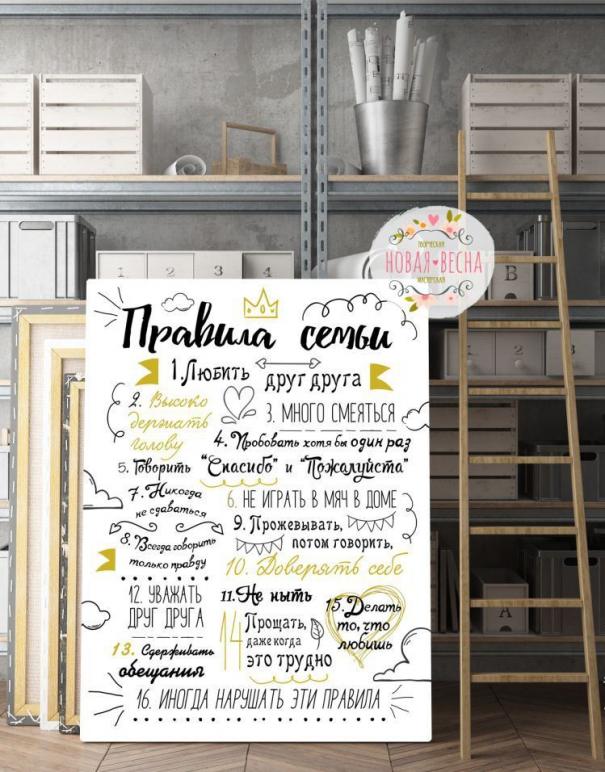 ТВОРЧЕСКАЯ
НОВАЯ ВЕСНА
МАСТЕРСКАЯ
1 2 3 4
B
Правила семьи
1. Любить друг друга
2. Высоко
держать
голову
3. МНОГО СМЕЯТЬСЯ
4. Пробовать хотя бы один раз
5. Говорить "Спасибо" и "Пожалуйста"
6. НЕ ИГРАТЬ В МЯЧ В ДОМЕ
7. Никогда
не сдаваться
8. Всегда говорить
только правду
9. Прожевывать,
потом говорить,
10. Доверять себе
11. Не ныть
12. УВАЖАТЬ
ДРУГ ДРУГА
13. Сдерживать
обещания
14 Прощать,
даже когда
это трудно
15. Делать
то, что
любишь
16. ИНОГДА НАРУШАТЬ ЭТИ ПРАВИЛА